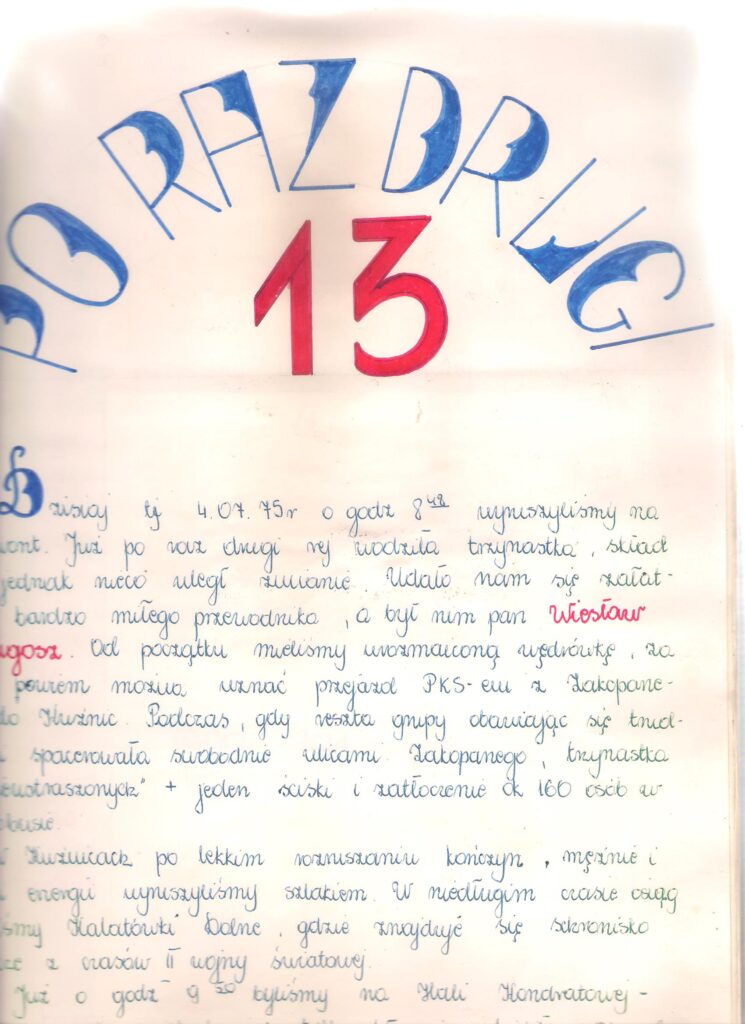 PO RAZ DRUGI
13
Dzisiaj tj 4.07.75r o godz 8 48 wyruszyliśmy na
wont. Już po raz drugi rej wodziła trzynastka, skład
jednak nieco uległ zmianie. Udało nam się załat-
bardzo miłego przewodnika, a był nim pan Wiesław
ugosz. Od początku mieliśmy urozmaiconą wędrówkę, za
powiem można uznać przejazd PKS-em z Zakopane-
do Kuźnic. Podczas, gdy reszta grupy obawiając się trud-
spacerowała swobodnie ulicami Zakopanego, trzynastka
eustraszonych" + jeden ściski i zatłoczenie ok 160 osób w
obusie.
W Kuźnicach po lekkim rozruszaniu kończyn, mężnie i
energii wyruszyliśmy szlakiem. W niedługim czasie osiąg
śmy Kalatówki Dolne, gdzie znajduje się schronisko
z czasów II wojny światowej.
Już o godz 9 20 byliśmy na Hali Kondratowej-